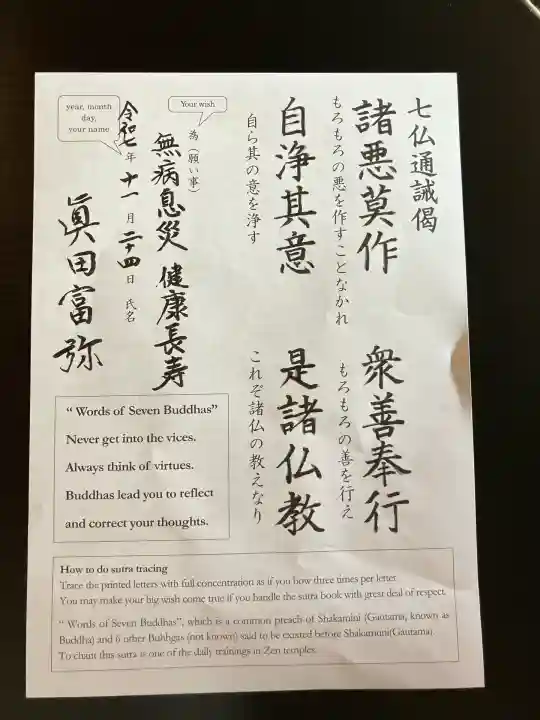 七仏通誡偈
諸悪莫作
もろもろの悪を作すことなかれ
衆善奉行
もろもろの善を行え
自浄其意
自ら其の意を浄す
是諸仏教
これぞ諸仏の教えなり
Your wish
為（願い事）
無病息災 健康長寿
year, month
day,
your name
令和七年 十一月 二十四日 氏名
眞田富弥
“ Words of Seven Buddhas”
Never get into the vices.
Always think of virtues.
Buddhas lead you to reflect
and correct your thoughts.
How to do sutra tracing
Trace the printed letters with full concentration as if you bow three times per letter.
You may make your big wish come true if you handle the sutra book with great deal of respect.
“ Words of Seven Buddhas”, which is a common preach of Shakamini (Gautama, known as
Buddha) and 6 other Buhhgas (not known) said to be existed before Shakamuni(Gautama).
To chant this sutra is one of the daily trainings in Zen temples.